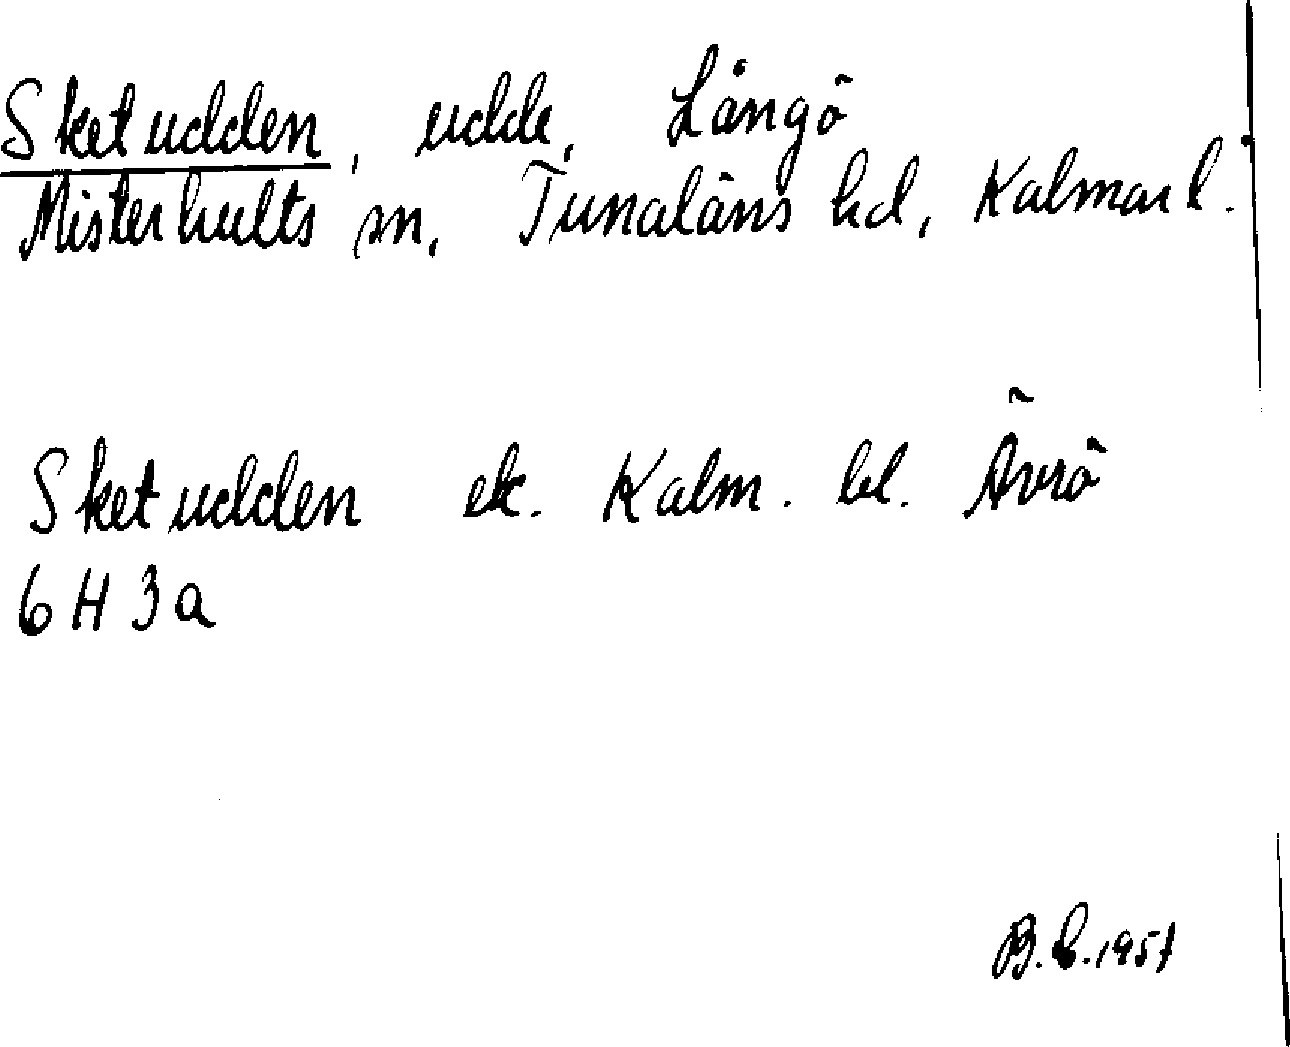 Sketudden, udde, Långö
Misterhults sn, Tunaläns hd, Kalmar l.
Sketudden ek. Kalm. bl. Ävrö
6 H 3 a
B. 1957